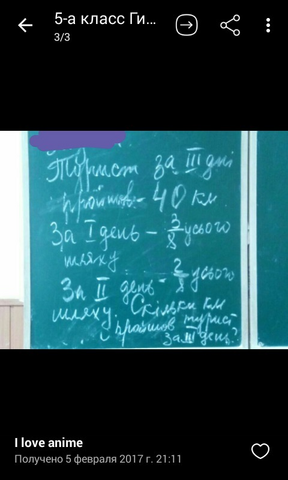 5-а класс Ги...
3/3
Турист за III дні
пройшов - 40 км.
За I день - 3/8 усього
шляху
За II день - 2/8 усього
шляху. Скільки км
пройшов турист
за III день?
I love anime
Получено 5 февраля 2017 г. 21:11